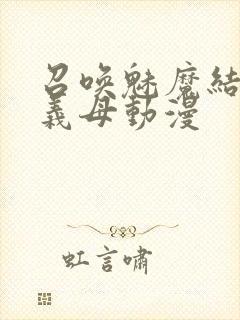 召喚魅魔結
義母動漫
虹言嘯